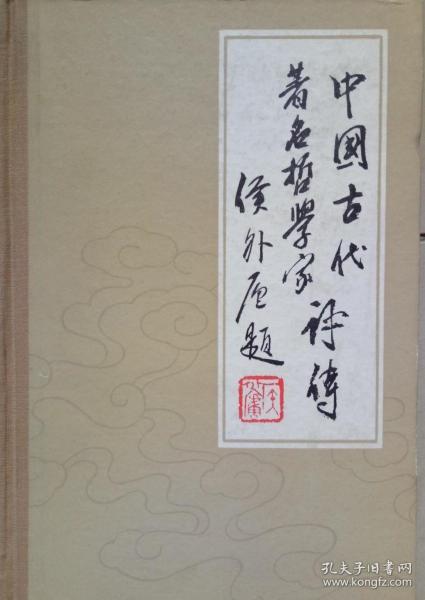 中國古代
著名哲學家
评傳
侯外庐題
孔夫子旧书网
www.kongfz.com